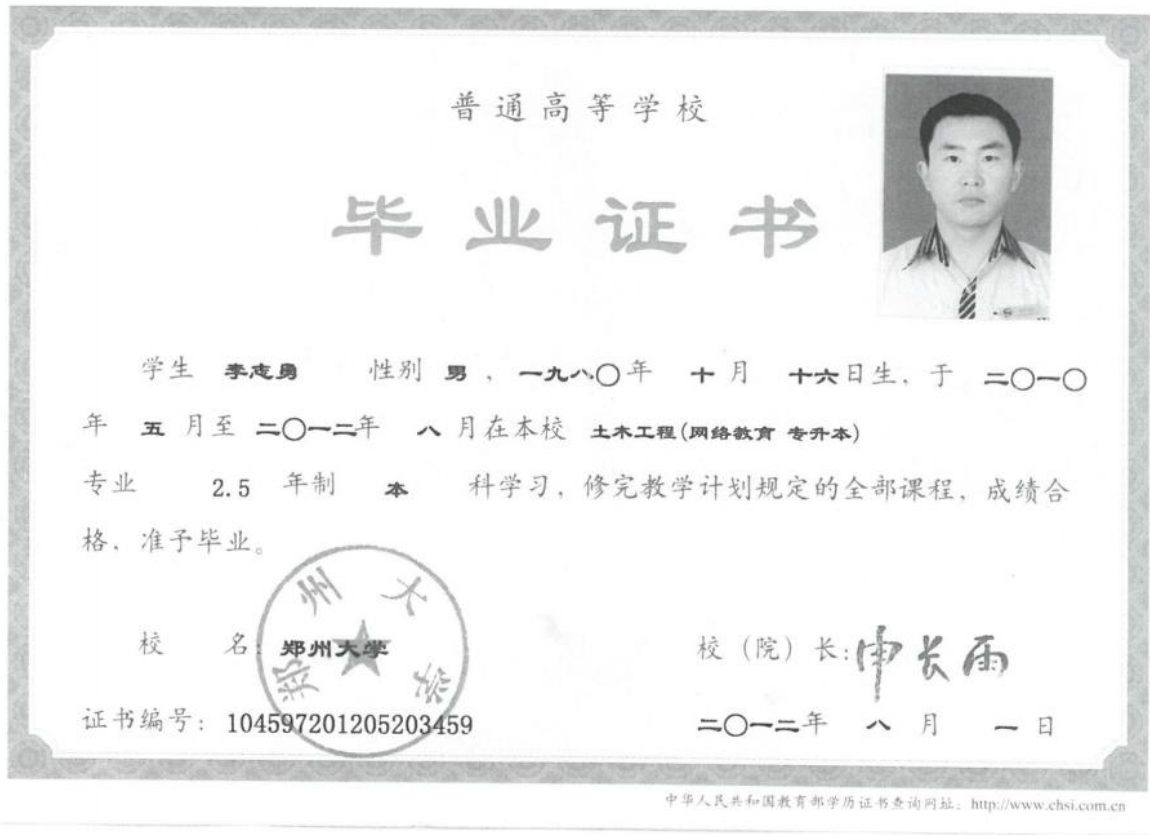 普通高等学校
毕业证书
学生 李志勇 性别 男 , 一九八〇年 十月 十六日生, 于 二〇一〇
年 五 月至 二〇一二年 八 月在本校 土木工程(网络教育 专升本)
专业 2.5 年制 本 科学习, 修完教学计划规定的全部课程, 成绩合
格, 准予毕业。
郑州大学
校 名: 郑州大学 校 (院) 长: 申长雨
证书编号: 104597201205203459 二〇一二年 八 月 一 日
中华人民共和国教育部学历证书查询网址: http://www.chsi.com.cn